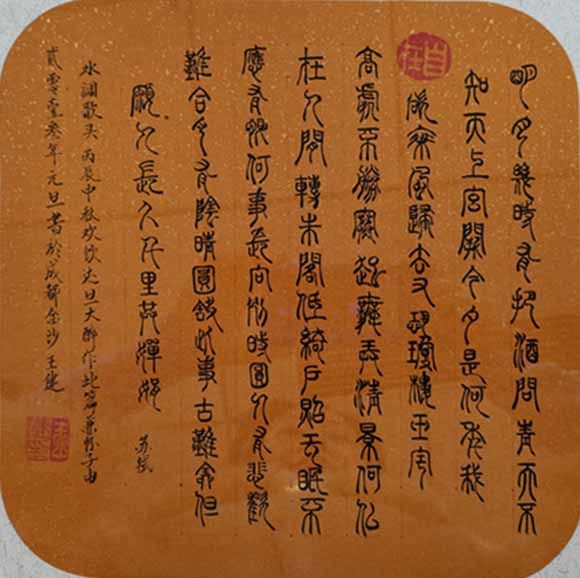 明月幾時有把酒問青天不
知天上宮闕今夕是何年我
欲乘風歸去又恐瓊樓玉宇
高處不勝寒起舞弄清景何似
在人間轉朱閣低綺戶照无眠不
應有恨何事長向別時圓人有悲歡
離合月有陰晴圓缺此事古難全但
願人長久千里共嬋娟
苏轼
水调歌头 丙辰中秋欢饮达旦大醉作此篇兼怀子由
貳零壹叁年元旦書於成都金沙王健